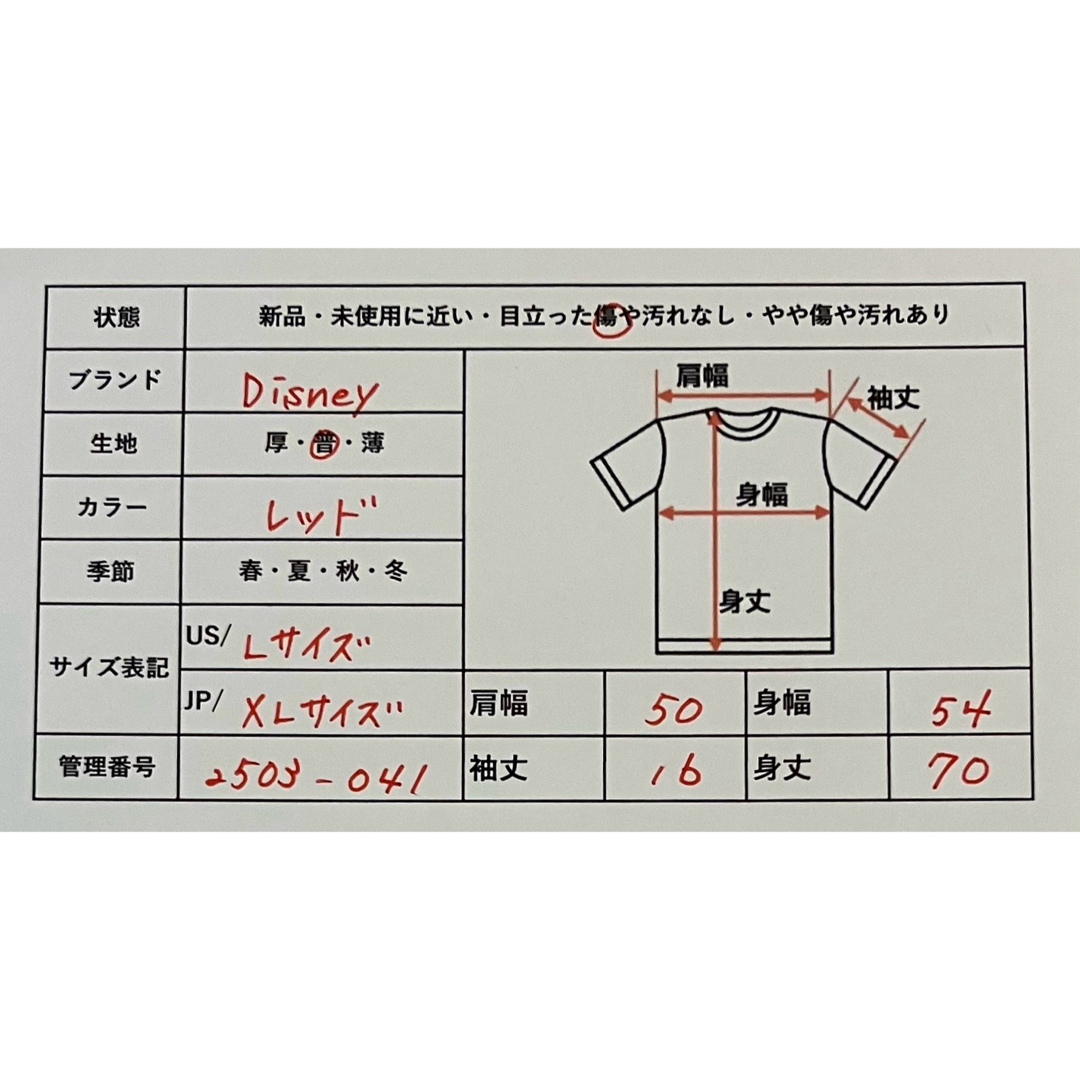 状態 新品・未使用に近い・目立った傷や汚れなし・やや傷や汚れあり
ブランド Disney
生地 厚・普・薄
カラー レッド
季節 春・夏・秋・冬
サイズ表記 US/ Lサイズ
JP/ XLサイズ
管理番号 2503-041
肩幅
袖丈
身幅
身丈
肩幅 50 身幅 54
袖丈 16 身丈 70